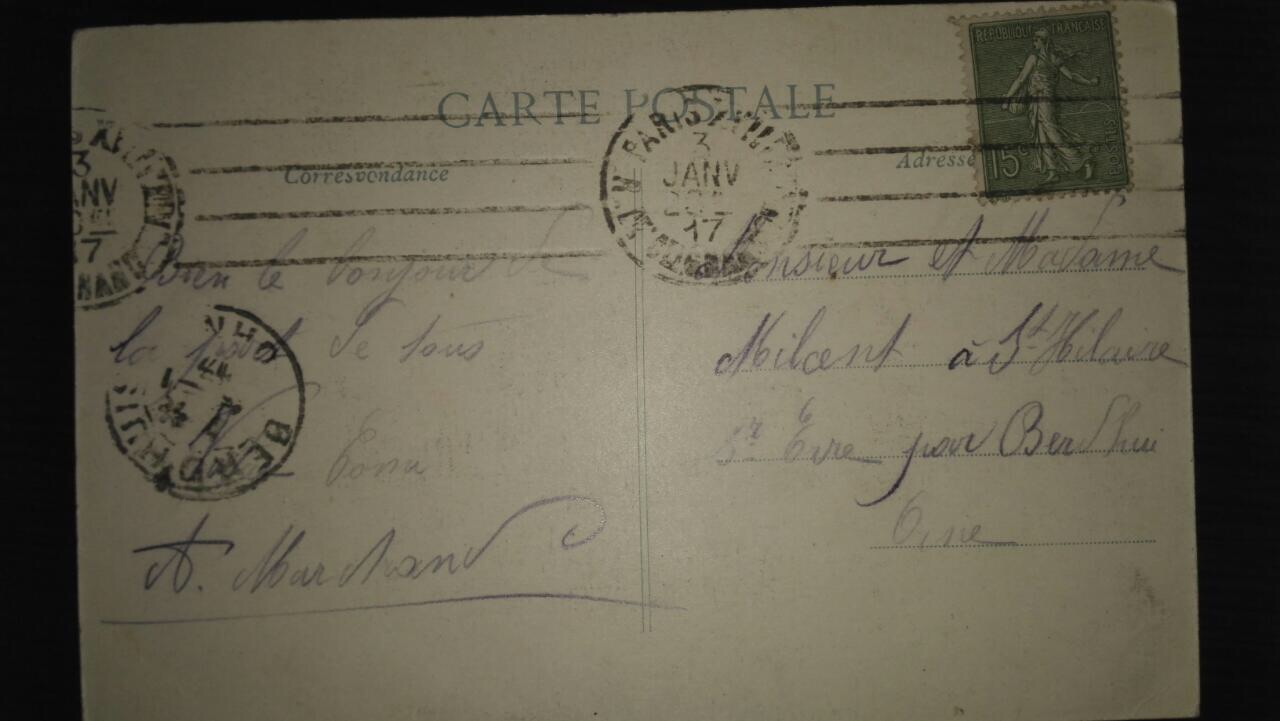 CARTE POSTALE
Correspondance
Adresse
RÉPUBLIQUE FRANÇAISE
15c
POSTES
PARIS
3
JANV
17
3
17
BERD HUIS
le bonjour de
la part de tous
A. Marchand
Monsieur et Madame
Milcent à St Hilaire
sr Erre par Berdhui
Orne